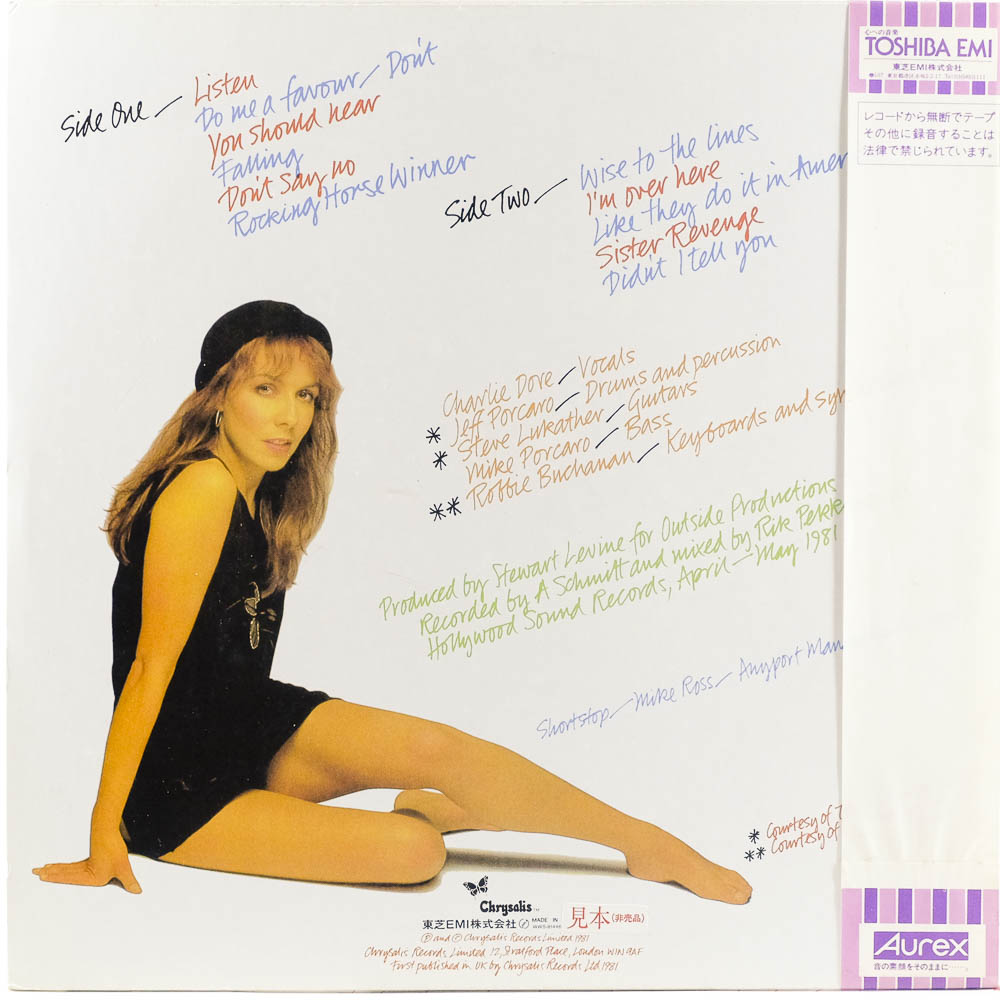 Side One — Listen
Do me a favour — Don't
You should hear
Falling
Don't Say no
Rocking Horse Winner
Side Two — Wise to the lines
I'm over here
Like they do it in Amer
Sister Revenge
Didn't I tell you
Charlie Dore — Vocals
* Jeff Porcaro — Drums and percussion
* Steve Lukather — Guitars
Mike Porcaro — Bass
** Robbie Buchanan — Keyboards and syn
Produced by Stewart Levine for Outside Productions
Recorded by A Schmitt and mixed by Rik Pekk
Hollywood Sound Records, April — May 1981
Shortstop — Mike Ross — Anyport Man
* Courtesy of
** Courtesy of
Chrysalis TM
東芝EMI株式会社 MADE IN 見本(非売品)
Ⓟ and Ⓒ Chrysalis Records Limited 1981
Chrysalis Records Limited 12, Stratford Place, London W1N 9AF
First published in UK by Chrysalis Records Ltd 1981
心への音楽
TOSHIBA EMI
東芝EMI株式会社
レコードから無断でテープ
その他に録音することは
法律で禁じられています。
Aurex
音の素顔をそのままに……。